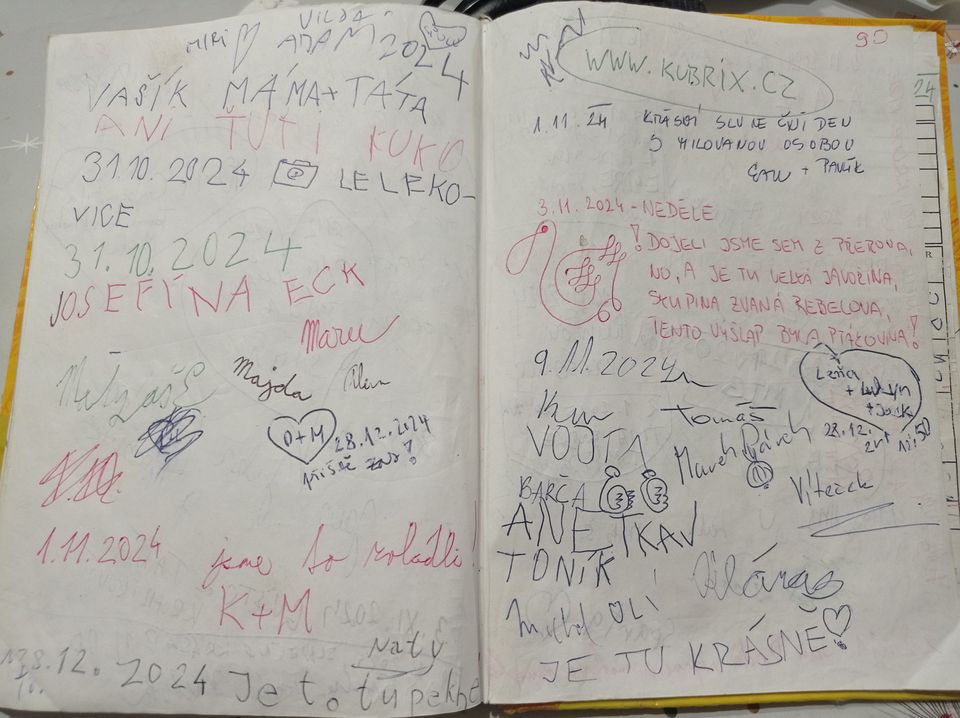 MIRI VILDA
ADAM 2024
VAŠÍK MÁMA+TÁTA
ANI TUTI KUKO
31.10.2024 LELEKO-
VICE
31.10.2024
JOSEFÍNA ECK
Majda
O+M 28.12.2024
příště zas!
1.11.2024 jsme to zvládli!
K+M
Naty
28.12.2024 Je to tu pekne
90
WWW.KUBRIX.CZ
24
1.11.24 KRÁSNÝ SLUNEČNÍ DEN
S MILOVANOU OSOBOU
+ PAVLÍK
3.11.2024 - NEDĚLE
! DOJELI JSME SEM Z PŘEROVA,
NO, A JE TU VELKÁ JAVOŘINA,
SKUPINA ZVANÁ REBELOVA,
TENTO VÝŠLAP BYLA PTÁKOVINA!
9.11.2024
Tomáš
+
+ Jack
28.12.
VOJTA
Marek
BARČA
Víteček
ANETKA
TONÍK
OLI
JE TU KRÁSNĚ!